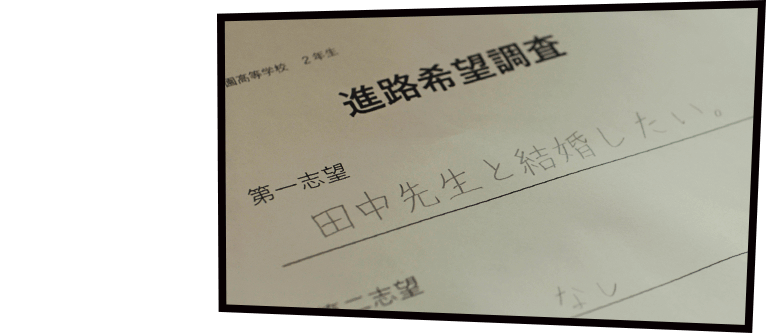 園高等学校 2年生
進路希望調査
第一志望
田中先生と結婚したい。
第二志望
なし